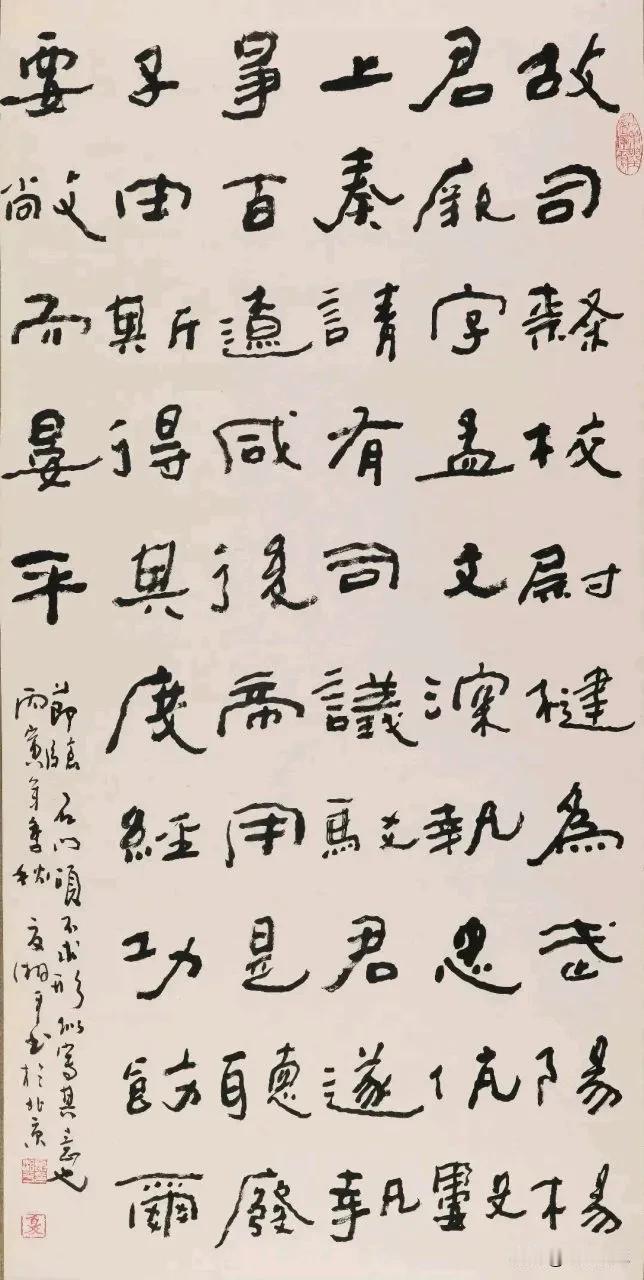 故司隸校尉楗為武陽楊
君厥字孟文深執忠伉數
上奏請有司議駮君遂執
爭百遼咸從帝用是聽廢
子由斯得其度經功飭爾
要敞而晏平
節臨石門頌不求形似寫其意也
丙寅年季秋夏湘平書於北京